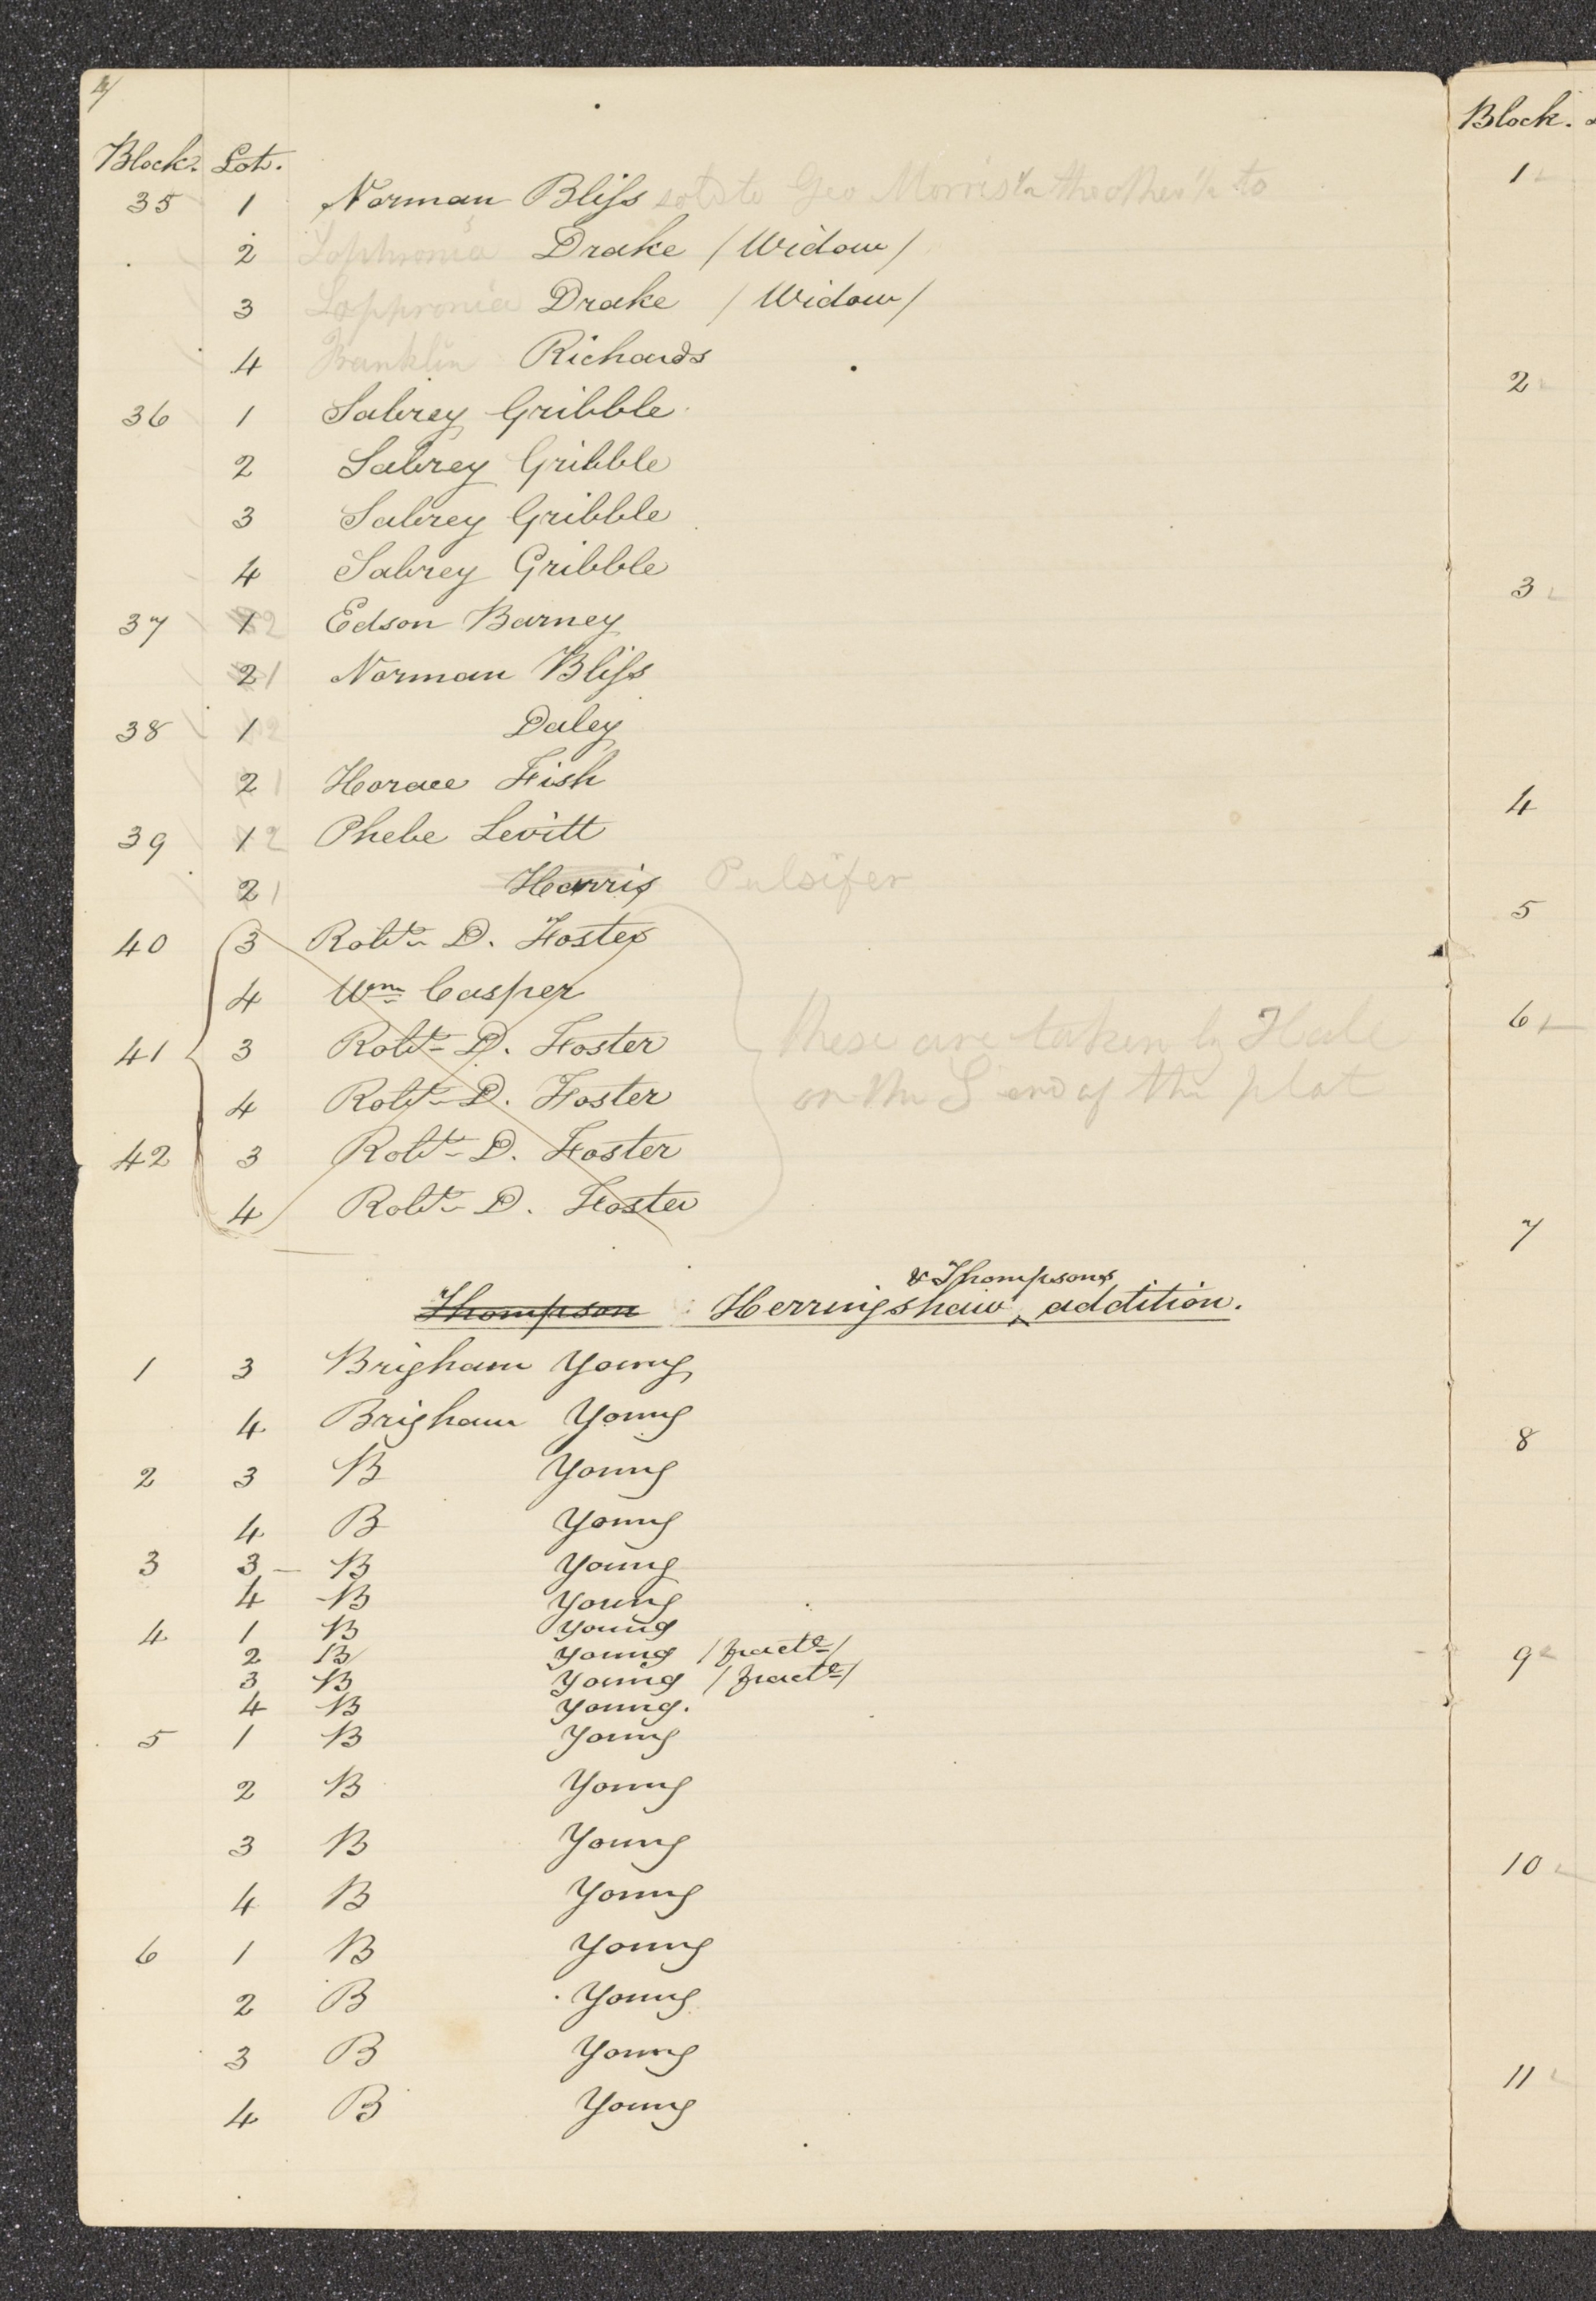 Block. Lot.
35 1 Norman Bliss sold to Geo Morris ½ the other ½ to
2 Sophronia Drake / Widow /
3 Sophronia Drake / Widow /
4 Franklin Richards
36 1 Sabrey Gribble
2 Sabrey Gribble
3 Sabrey Gribble
4 Sabrey Gribble
37 1 2 Edson Barney
2 1 Norman Bliss
38 1 2 Daley
2 1 Horace Fish
39 1 2 Phebe Levitt
2 1 Harris Pulsifer
40 3 Robt. D. Foster
4 Wm Casper
41 3 Robt. D. Foster
4 Robt. D. Foster
42 3 Robt. D. Foster
4 Robt. D. Foster
these are taken by Hale
on the S end of the plat
Thompson Herringshaw & Thompsons addition.
1 3 Brigham Young
4 Brigham Young
2 3 B Young
4 B Young
3 3 – B Young
4 B Young
4 1 B Young
2 B Young / fractl /
3 B Young / fractl /
4 B Young.
5 1 B Young
2 B Young
3 B Young
4 B Young
6 1 B Young
2 B Young
3 B Young
4 B Young
Block.
1
2
3
4
5
6
7
8
9
10
11